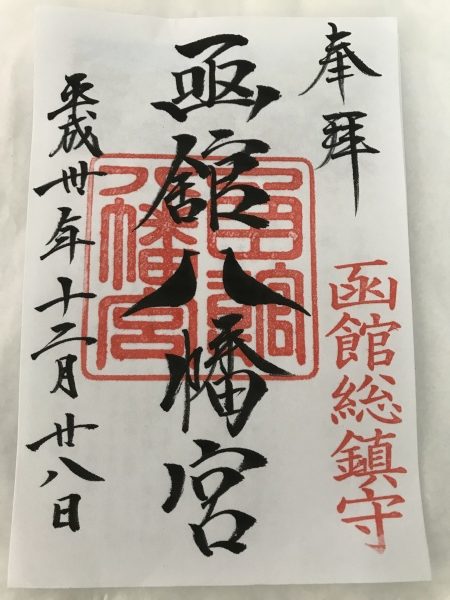 奉拝
函館総鎮守
凾舘八幡宮
函館
八幡宮
平成卅年十二月廿八日